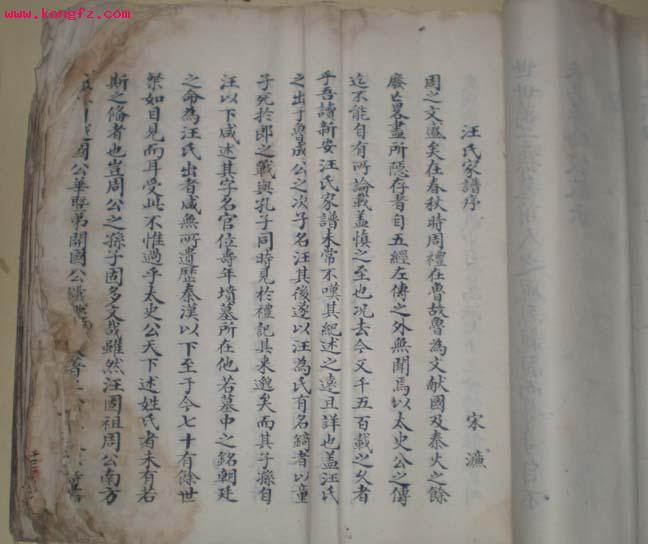 www.kongfz.com
汪氏家譜序
宋濂
周之文盛矣在春秋時周禮在魯故魯為文献國及秦火之餘
廢亡畧盡所隱存者自五經左傳之外無聞焉以太史公之傳
迄不能自有所論載蓋慎之至也况去今又千五百載之久者
乎吾讀新安汪氏家譜未常不嘆其紀述之遠且詳也盖汪氏
之出于魯成公之次子名汪其後遂以汪為氏有名錡者以童
子死於郎之戰與孔子同時見於禮記其来邈矣而其子孫自
汪以下咸述其字名官位壽年墳墓所在他若墓中之銘朝廷
之命為汪氏出者咸無所遺歷秦漢以下至于今七十有餘世
粲如目見而耳受此不惟過乎太史公天下述姓氏者未有若
斯之俻者也豈周公之孫子固多文哉雖然汪固祖周公南方
國公華暨弟開國公鐵